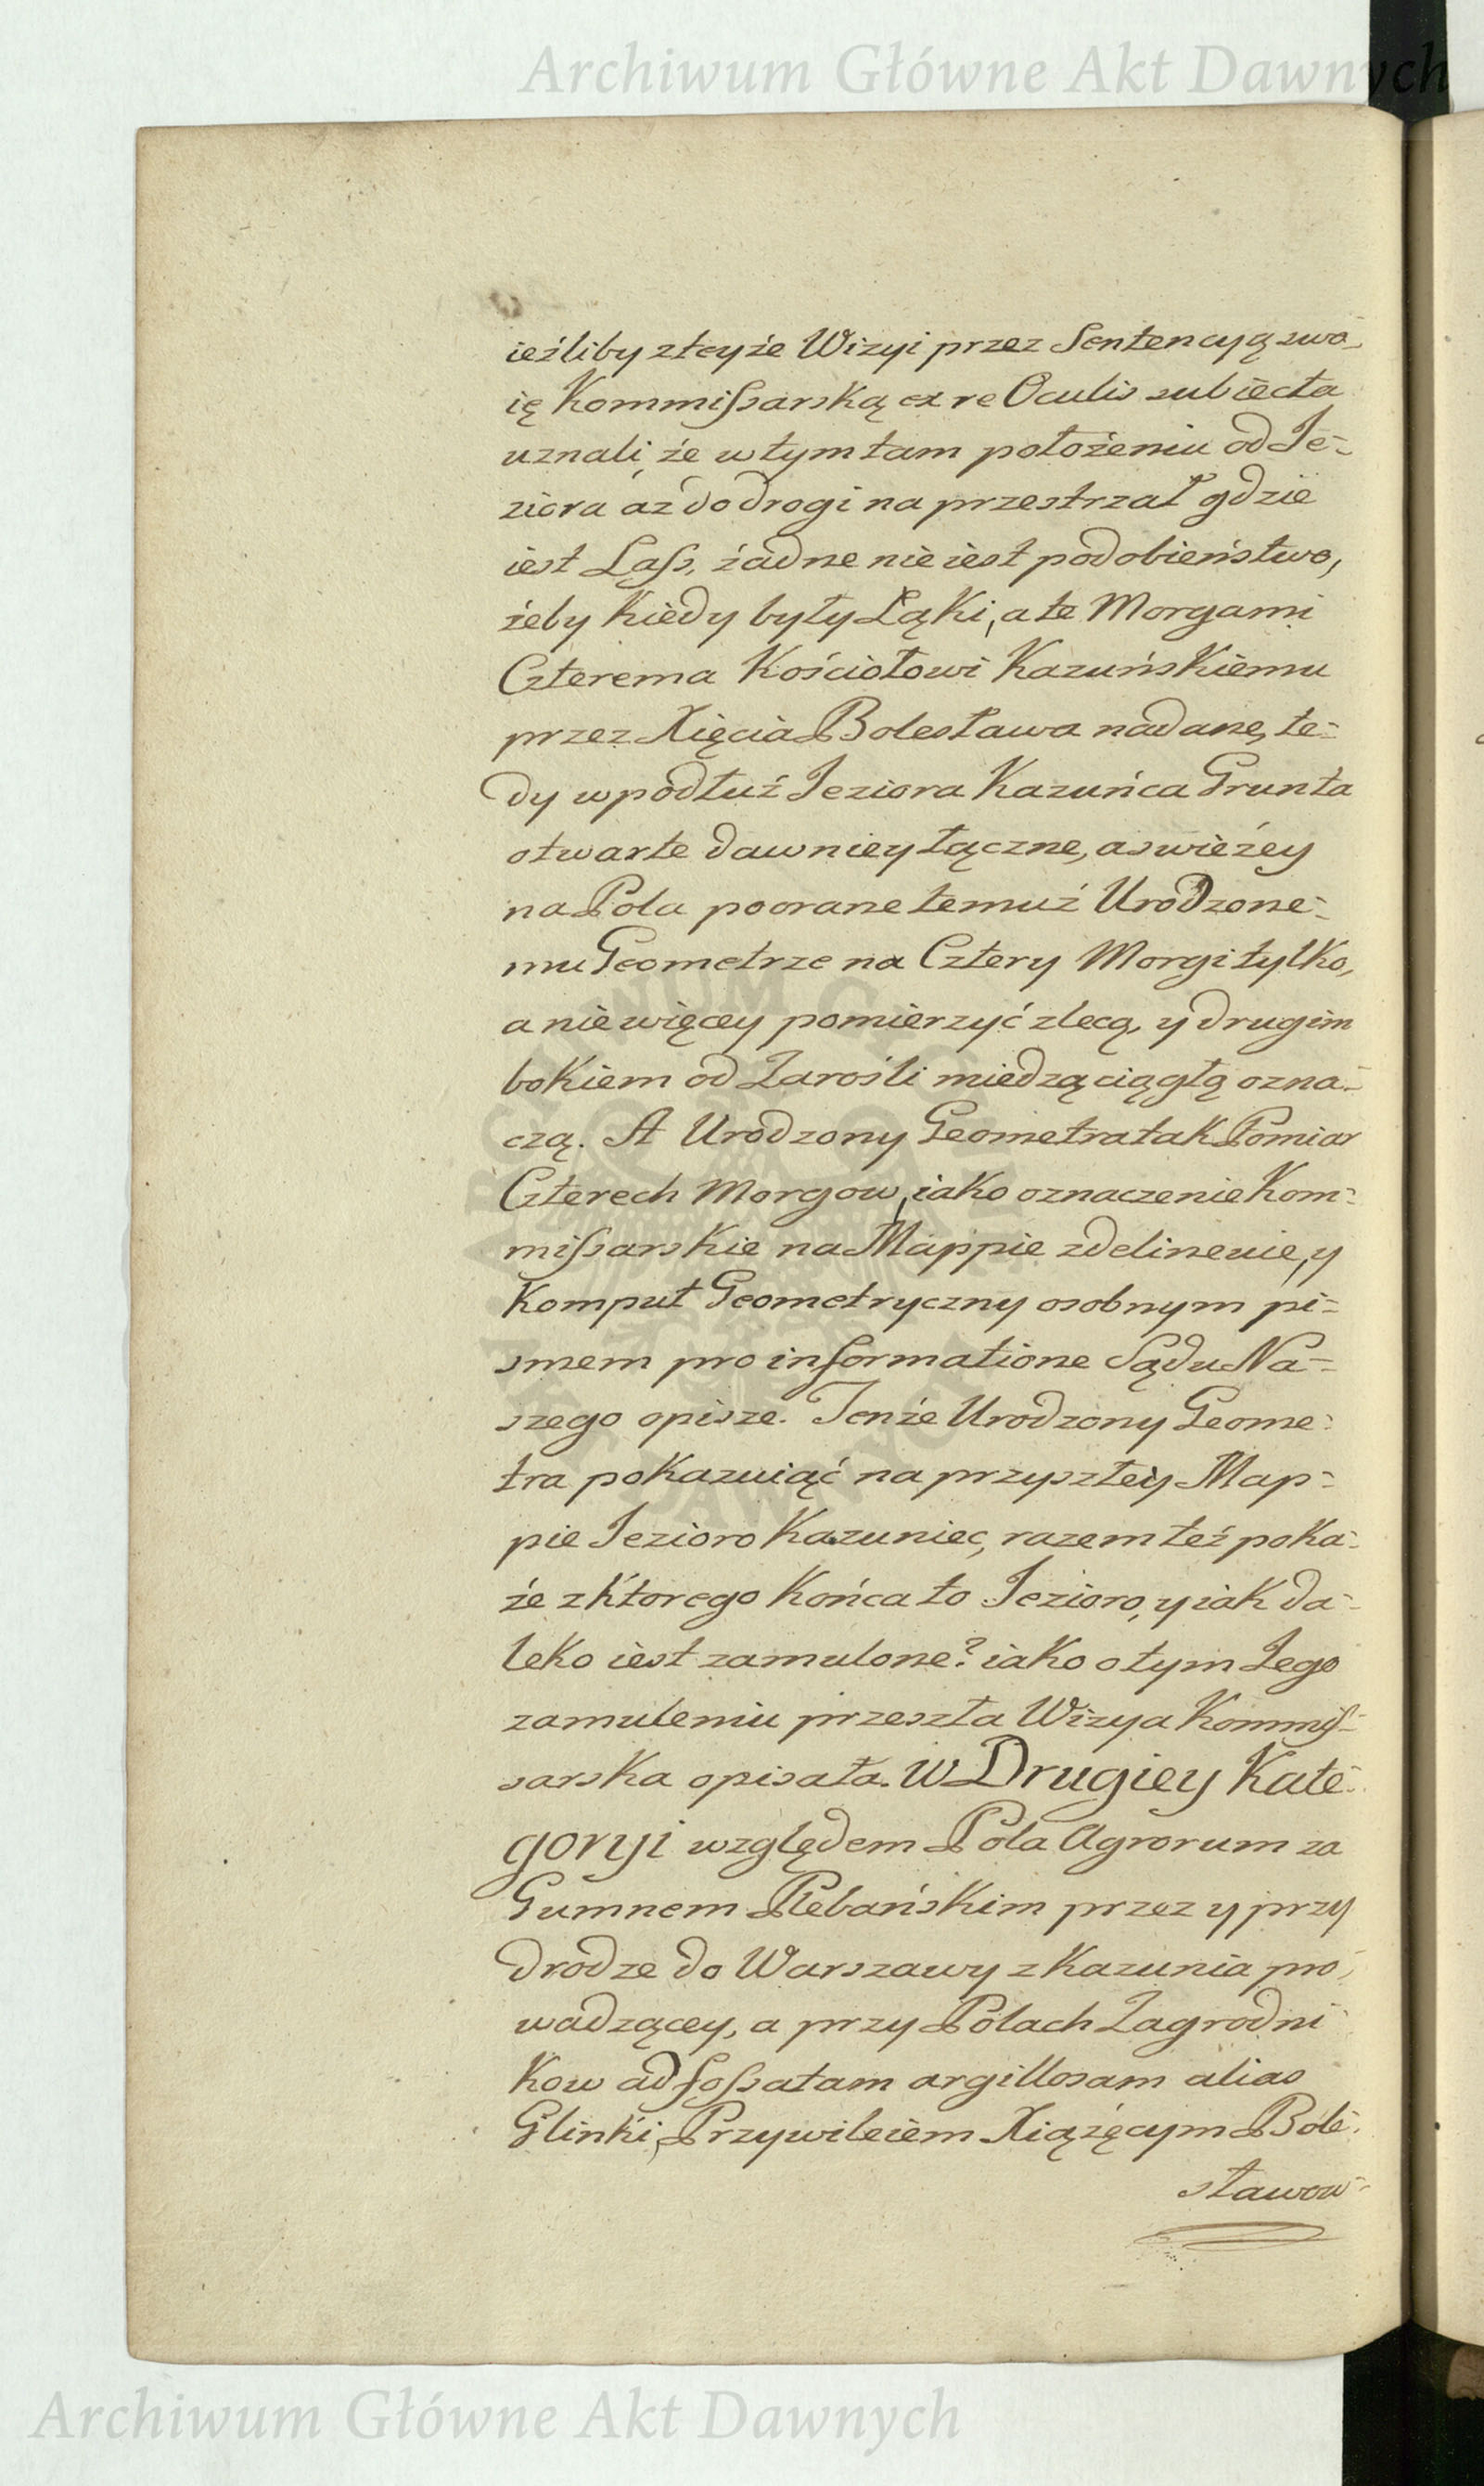 Archiwum Główne Akt Dawnych
ieźliby z teyże Wizyi przez Sentencyą swo-
ię Kommissarską ex re Oculis subiecta
uznali, że w tym tam położeniu od Je-
ziora aż do drogi na przestrzał gdzie
iest Lass, żadne nie iest podobieństwo,
żeby kiedy były Łąki, a te Morgami
Czterema Kościołowi Kazuńskiemu
przez Xięcia Bolesława nadane, te-
dy wpodłuż Jeziora Kazuńca Grunta
otwarte dawniey łączne, a swieżey
na Pola poorane temuż Urodzone-
mu Geometrze na Cztery Morgi tylko,
a nie więcey pomierzyć zlecą, y drugim
bokiem od Zarośli miedzą ciągłą ozna-
czą. A Urodzony Geometra tak Pomiar
Czterech Morgow, iako oznaczenie Kom-
missarskie na Mappie zdelineuie, y
Komput Geometryczny osobnym pi-
smem pro informatione Sądu Na-
szego opisze. Tenże Urodzony Geome-
tra pokazuiąć na przyszłey Map-
pie Jezioro Kazuniec, razem też poka-
że z ktorego Końca to Jezioro, y iak da-
leko iest zamulone? iako o tym Jego
zamuleniu przeszła Wizya Kommis-
sarska opisała. W Drugiey Kate-
goryi względem Pola Agrorum za
Gumnem Plebańskim przez y przy
drodze do Warszawy z Kazunia pro-
wadzącey, a przy Polach Zagrodni
kow ad fossatam argillosam alias
Glinki, Przywileiem Xiążęcym Bole-
sławow-
Archiwum Główne Akt Dawnych